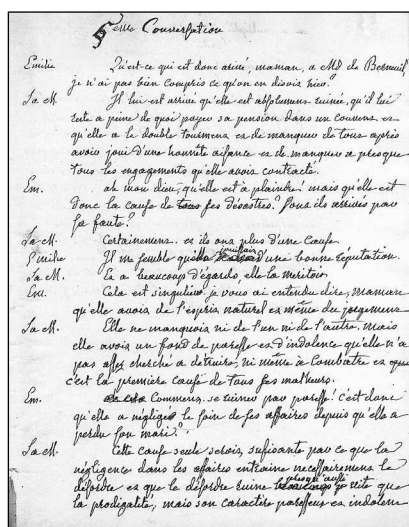 5eme Conversation
Emilie Qu'est-ce qui est donc arrivé, maman, a Md de Berneuil,
je n'ai pas bien compris ce qu'on en disoit hier?
La M. Il lui est arrivé qu'elle est absolument ruiné, qu'il lui
reste a peine de quoi payer sa pension dans un couvent et
qu'elle a le double tourment et de manquer de tout après
avoir joui d'une honnête aisance et de manquer a presque
tous les engagements qu'elle avoit contracté.
Em. ah mon dieu, qu'elle est a plaindre! mais qu'elle est
donc la cause de tous ses désastres? sont ils arrivés par
sa faute?
La M. Certainement et ils ont plus d'une cause
Emilie Il me semble qu'elle jouissait d'une bonne réputation.
La M. Ca a beaucoup d'égards, elle la meritoit
Em. Cela est singulier, je vous ai entendu dire, maman
qu'elle avoit de l'esprit naturel et même du jugement
La M. Elle ne manquoit ni de l'un ni de l'autre, mais
elle avoit un fond de paresse et d'indolence qu'elle n'a
pas assez cherché a detruire, ni même a combatre et
c'est la première cause de tous ses malheurs.
Em. Comment, se ruiner par paresse! c'est donc
qu'elle a négligé le soin de ses affaires depuis qu'elle a
perdu son mari?
La M. Cette cause seule seroit sufisante par ce que la
négligence dans les affaires entraine necessairement le
désordre et que le désordre ruine presque aussi vite que
la prodigalité, mais son caractère paresseux et indolent